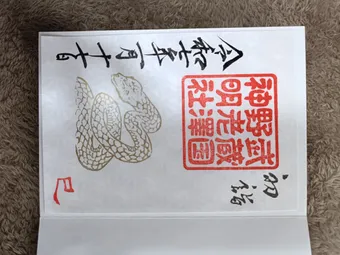 初詣
武蔵国
野老澤
神明社
令和七年一月十七日
巳